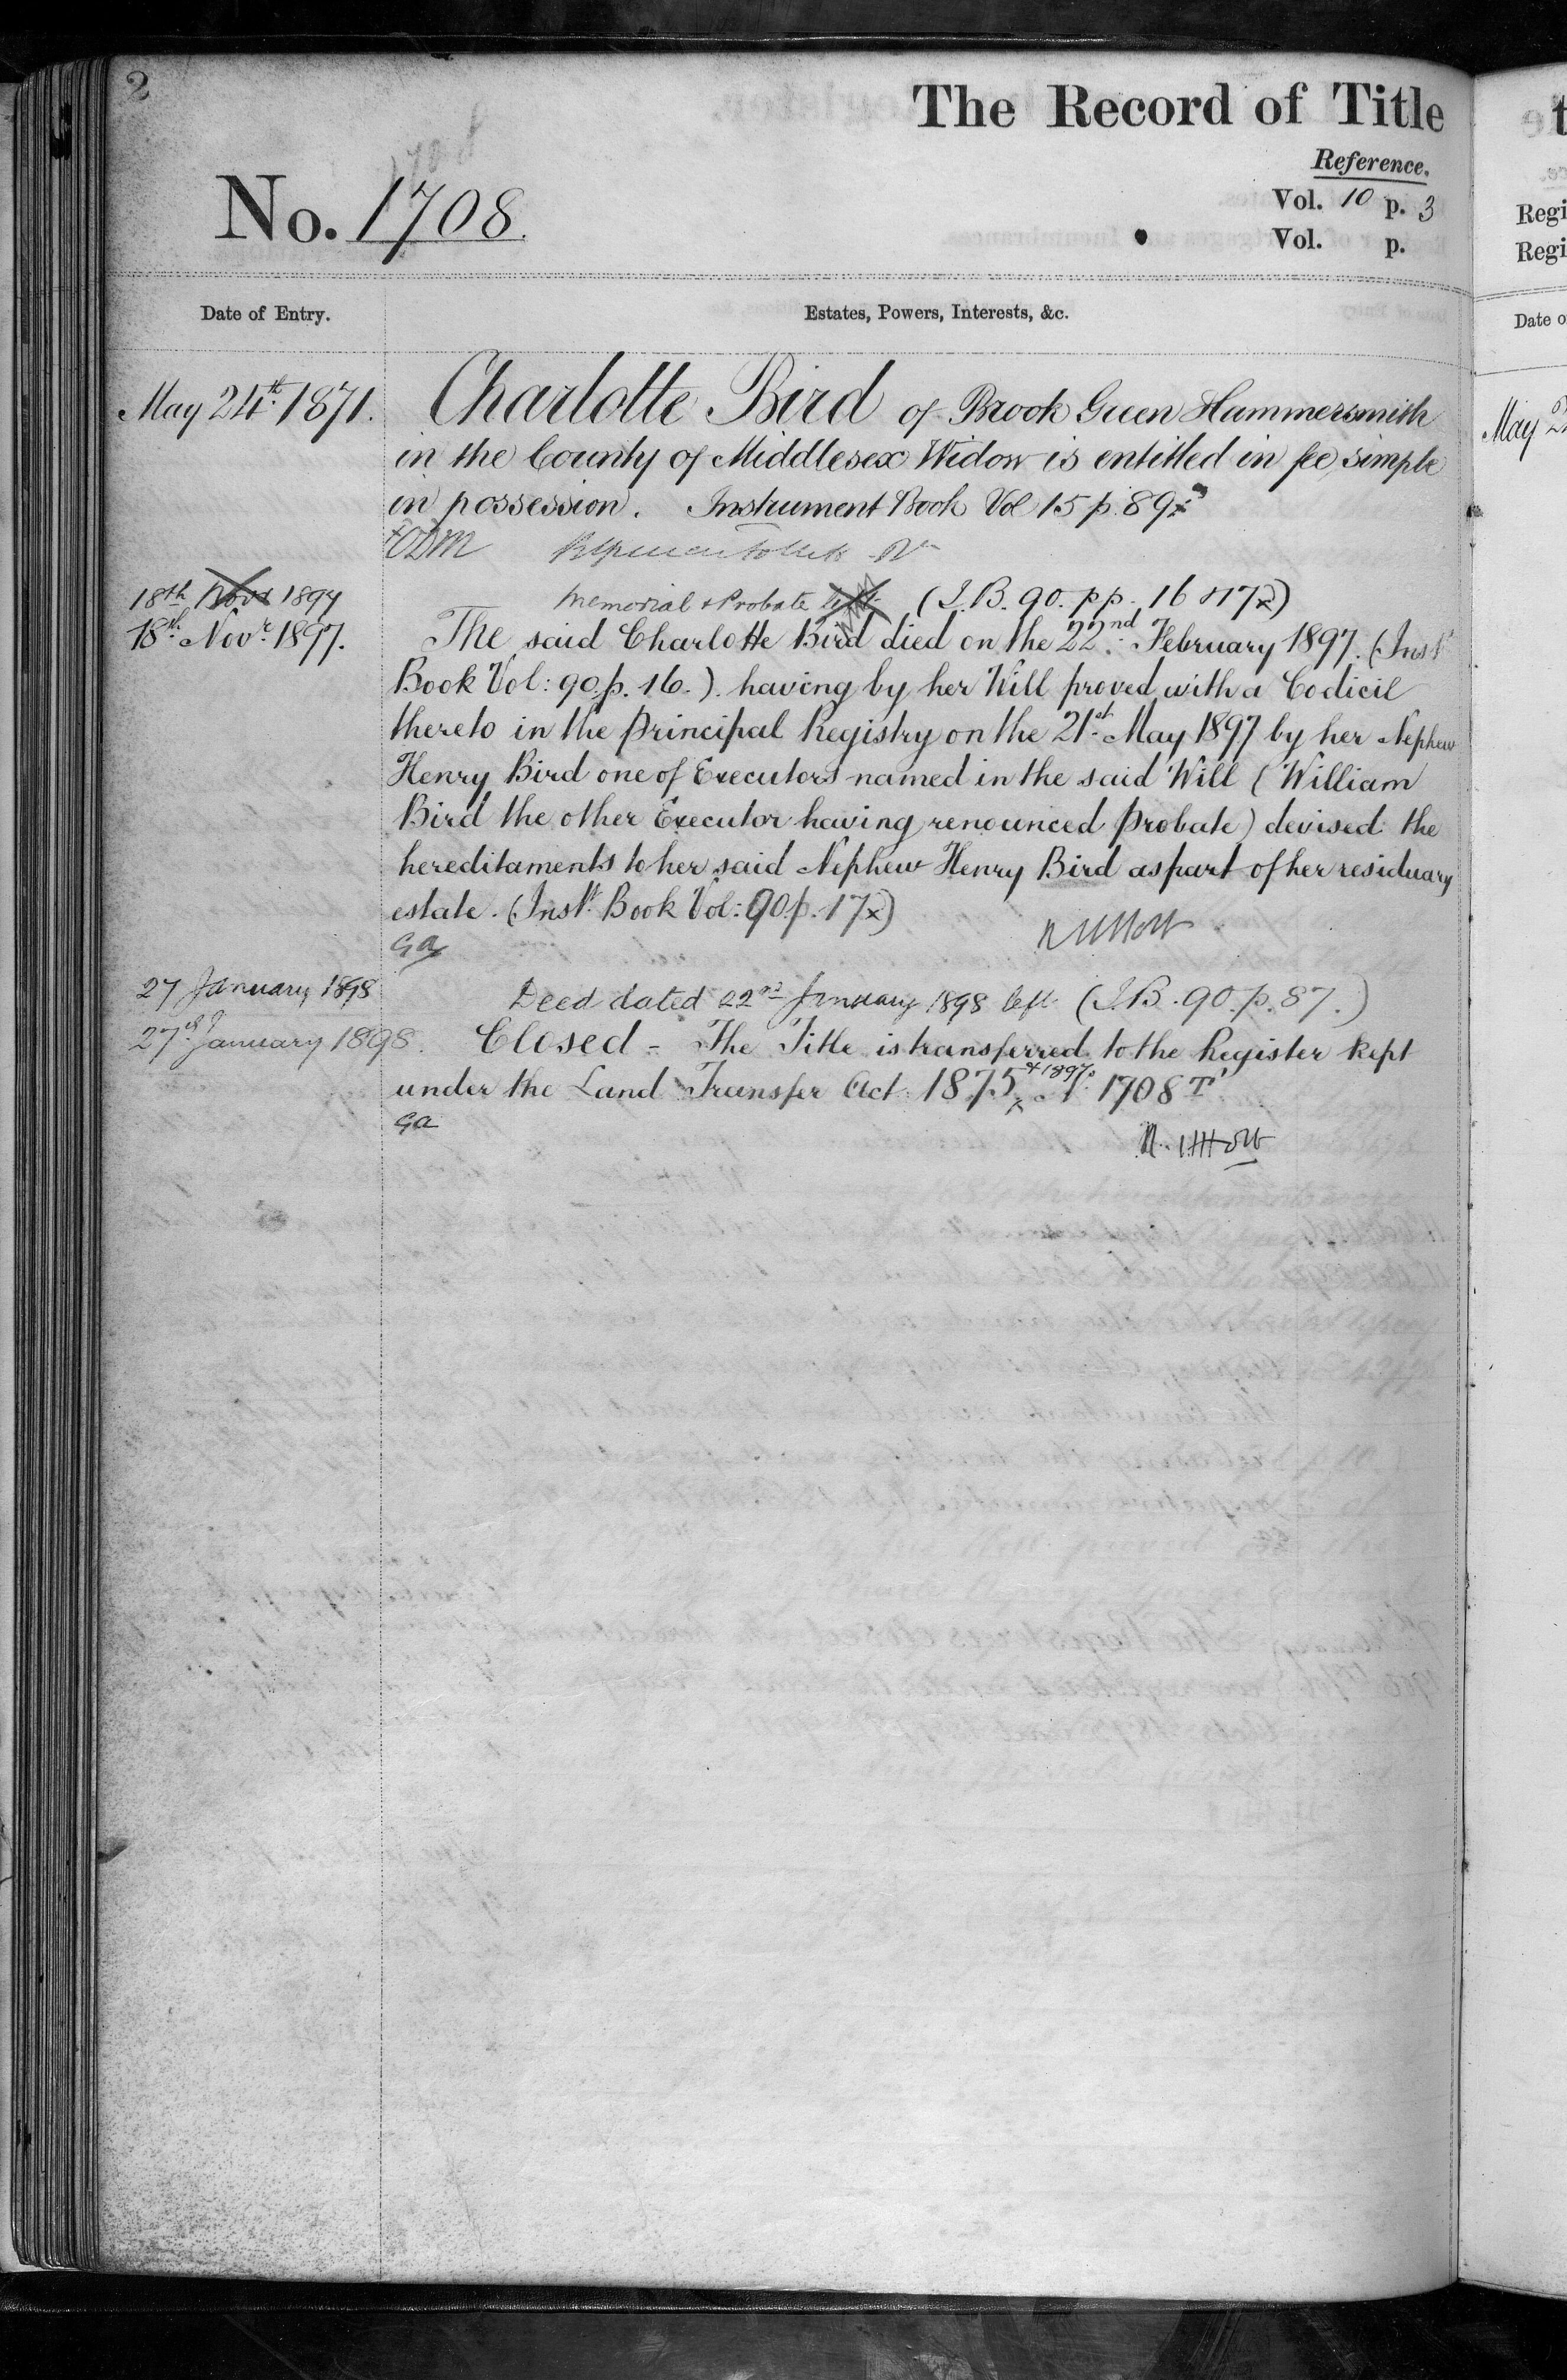 2
The Record of Title
Reference.
No. 1708.
Vol. 10 p. 3
Vol. p.
Date of Entry.
Estates, Powers, Interests, &c.
May 24th. 1871. Charlotte Bird of Brook Green Hammersmith
in the County of Middlesex Widow is entitled in fee simple
in possession. Instrument Book Vol 15 p. 89x
18th Novr 1897 Memorial & Probate left (I.B. 90. pp. 16 & 17x)
18th. Novr. 1897. The said Charlotte Bird died on the 22nd. February 1897. (Inst
Book Vol: 90. p. 16.). having by her Will proved with a Codicil
thereto in the principal Registry on the 21st. May 1897 by her Nephew
Henry Bird one of Executors named in the said Will (William
Bird the other Executor having renounced probate) devised the
hereditaments to her said Nephew Henry Bird as part of her residuary
estate. (Inst. Book Vol: 90. p. 17x)
Ga
27 January 1898 Deed dated 22nd January 1898 left (I.B. 90. p. 87.)
27th. January 1898. Closed - The Title is transferred to the Register kept
under the Land Transfer Act 1875 & 1897 No. 1708 T
Ga
Regi
Regi
Date o
May 2